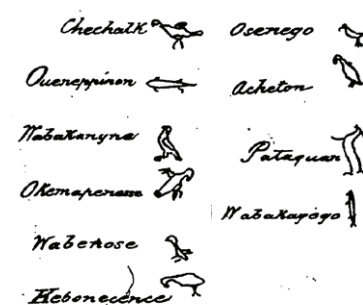 Chechalk
Oueneppinon
Wabakanyne
Okemapenesse
Wabenose
Kebonecence
Osenego
Acheton
Pataquan
Wabakagogo